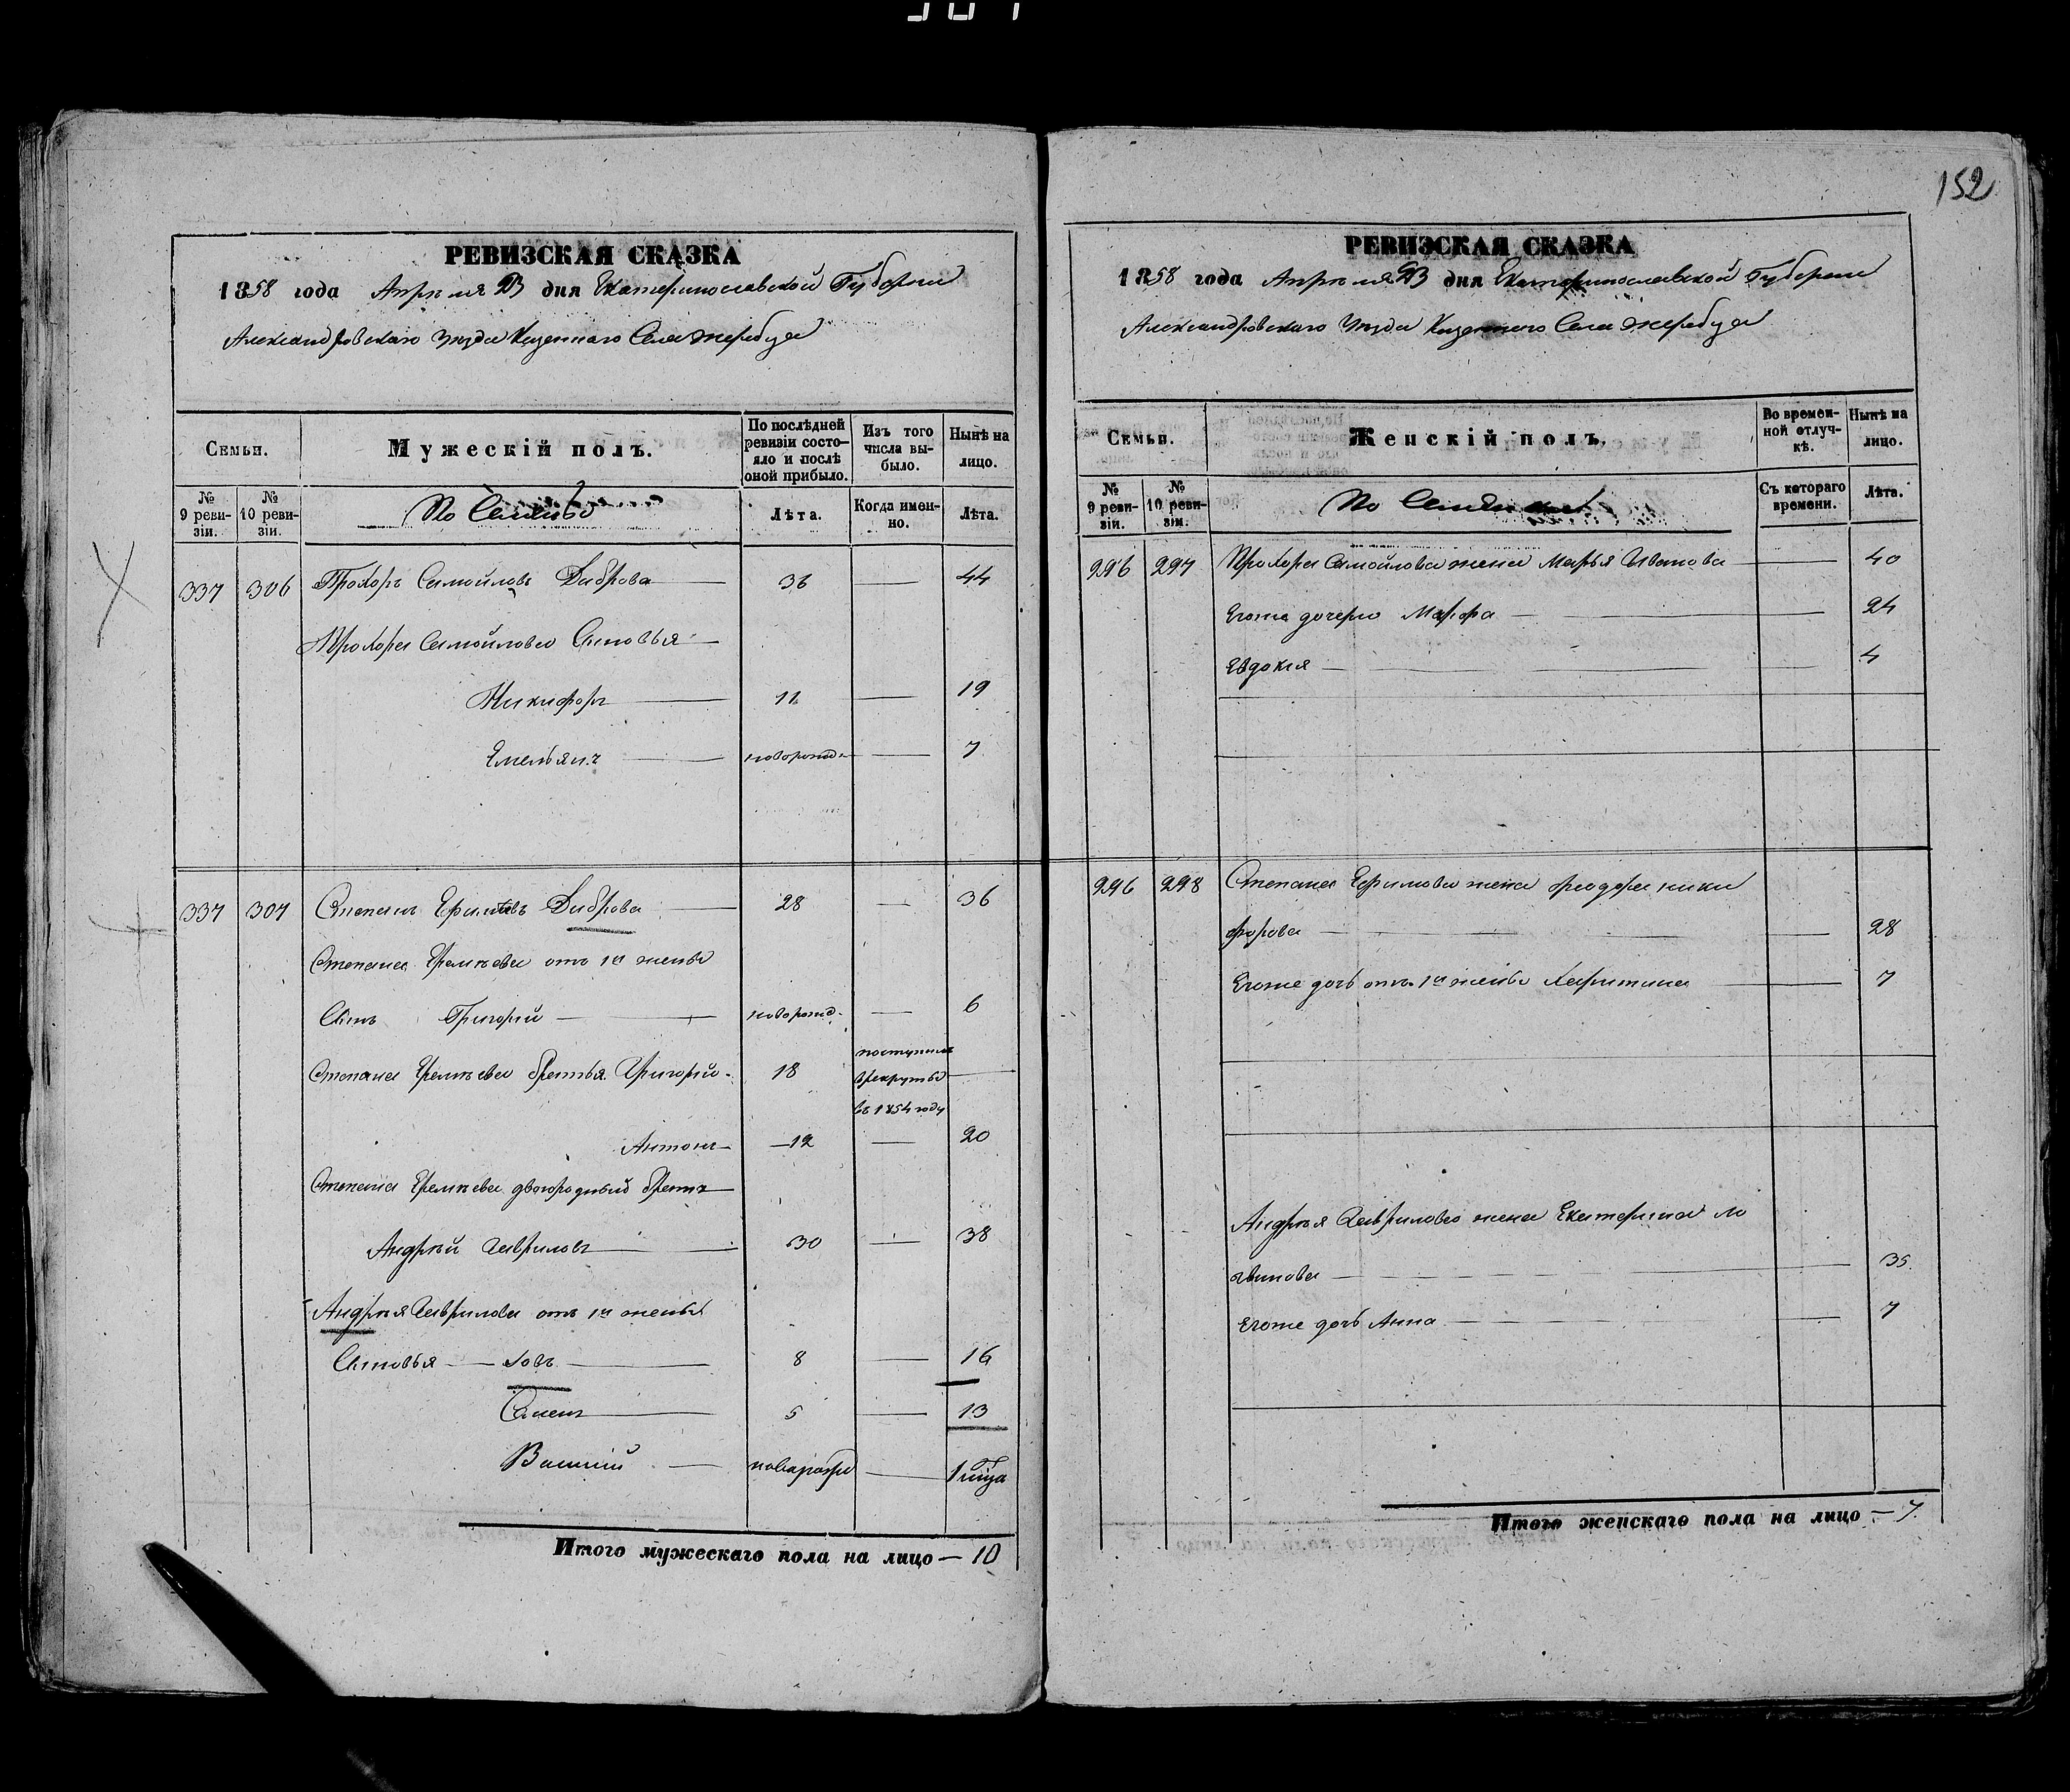 152
РЕВИЗСКАЯ СКАЗКА
1858 года Апреля 23 дня Екатеринославской Губернии
Александровскаго Уезда Казеннаго Села Жеребца
Семьи.
Мужескій полъ.
По послѣдней ревизіи состо-
яло и послѣ оной прибыло.
Изъ того числа вы-
было.
Нынѣ на лицо.
№ 9 реви-
зіи.
№ 10 реви-
зіи.
Лѣта.
Когда имен-
но.
Лѣта.
337 306 Прохоръ Самойловъ Диброва — 36 — 44
Прохора Самойлова Сыновья —
Никифоръ — 11 — 19
Емельянъ — новорожд — 7
337 307 Степанъ Диброва — 28 — 36
Степана от 1й жены
Сынъ Григорий — новорожд. — 6
Степана братья Григорий — 18 поступилъ
в рекруты —
въ 1854 году
Антонъ — 12 — 20
Степана двоюродный братъ
Андрѣй Гавриловъ — 30 — 38
Андрѣя Гаврилова отъ 1й жены
Сыновья — Іовъ — 8 — 16
Семенъ — 5 — 13
Василий — новарожд — 1 года
Итого мужескаго пола на лицо — 10
РЕВИЗСКАЯ СКАЗКА
1858 года Апреля 23 дня Екатеринославской Губернии
Александровскаго Уезда Казеннаго Села Жеребца
Семьи.
Женскій полъ.
Во времен-
ной отлуч-
кѣ.
Нынѣ на лицо.
№ 9 реви-
зіи.
№ 10 реви-
зіи.
Съ котораго времени.
Лѣта.
296 297 Прохора Самойлова жена Марья Иванова — 40
Егоже дочери Марфа — 24
Евдокия — 4
296 298 Степана Ефимова жена Феодора Ники
форова — 28
Егоже дочь отъ 1й жены Харитина — 7
Андрѣя Гаврилова жена Екатерина Ло
гвинова — 35
Егоже дочь Анна — 7
Итого женскаго пола на лицо — 7